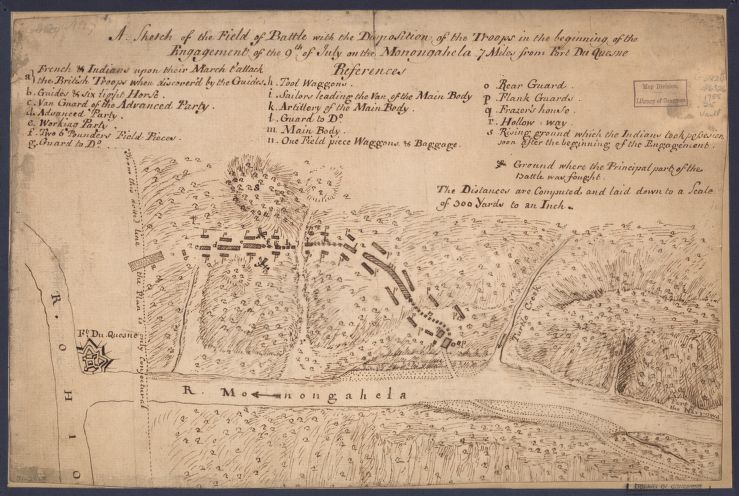 A Sketch of the Field of Battle with the Disposition of the Troops in the beginning of the
Engagement of the 9th of July on the Monongahela 7 Miles from Fort Du Quesne
References
a French & Indians upon their March t'attack
the British Troops when discover'd by the Guides
b. Guides & six light Horse
c. Van Guard of the Advanced Party.
d. Advanced Party.
e. Working Party
f. Two 6 Pounders Field Pieces.
g. Guard to Do.
h. Tool Waggons.
i. Sailors leading the Van of the Main Body
k. Artillery of the Main Body.
l. Guard to Do.
m. Main Body.
n. One Field piece Waggons & Baggage.
o Rear Guard.
p. Flank Guards.
q. Frazer's house
r. Hollow way.
s Rising ground which the Indians took possession
soon after the beginning of the Engagement.
Ground where the Principal part of the
battle was fought.
The Distances are Computed and laid down to a Scale
of 300 Yards to an Inch.
Map Division
Library of Congress
1755
Vault
From this dotted line
the Plan is only Conjectural
s
Ft. Du Quesne
R. OHIO
R. Monongahela
Turtle Creek
LIBRARY OF CONGRESS